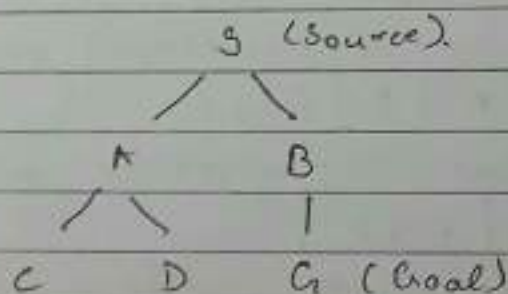 S (Source).
A B
C D G (Goal)